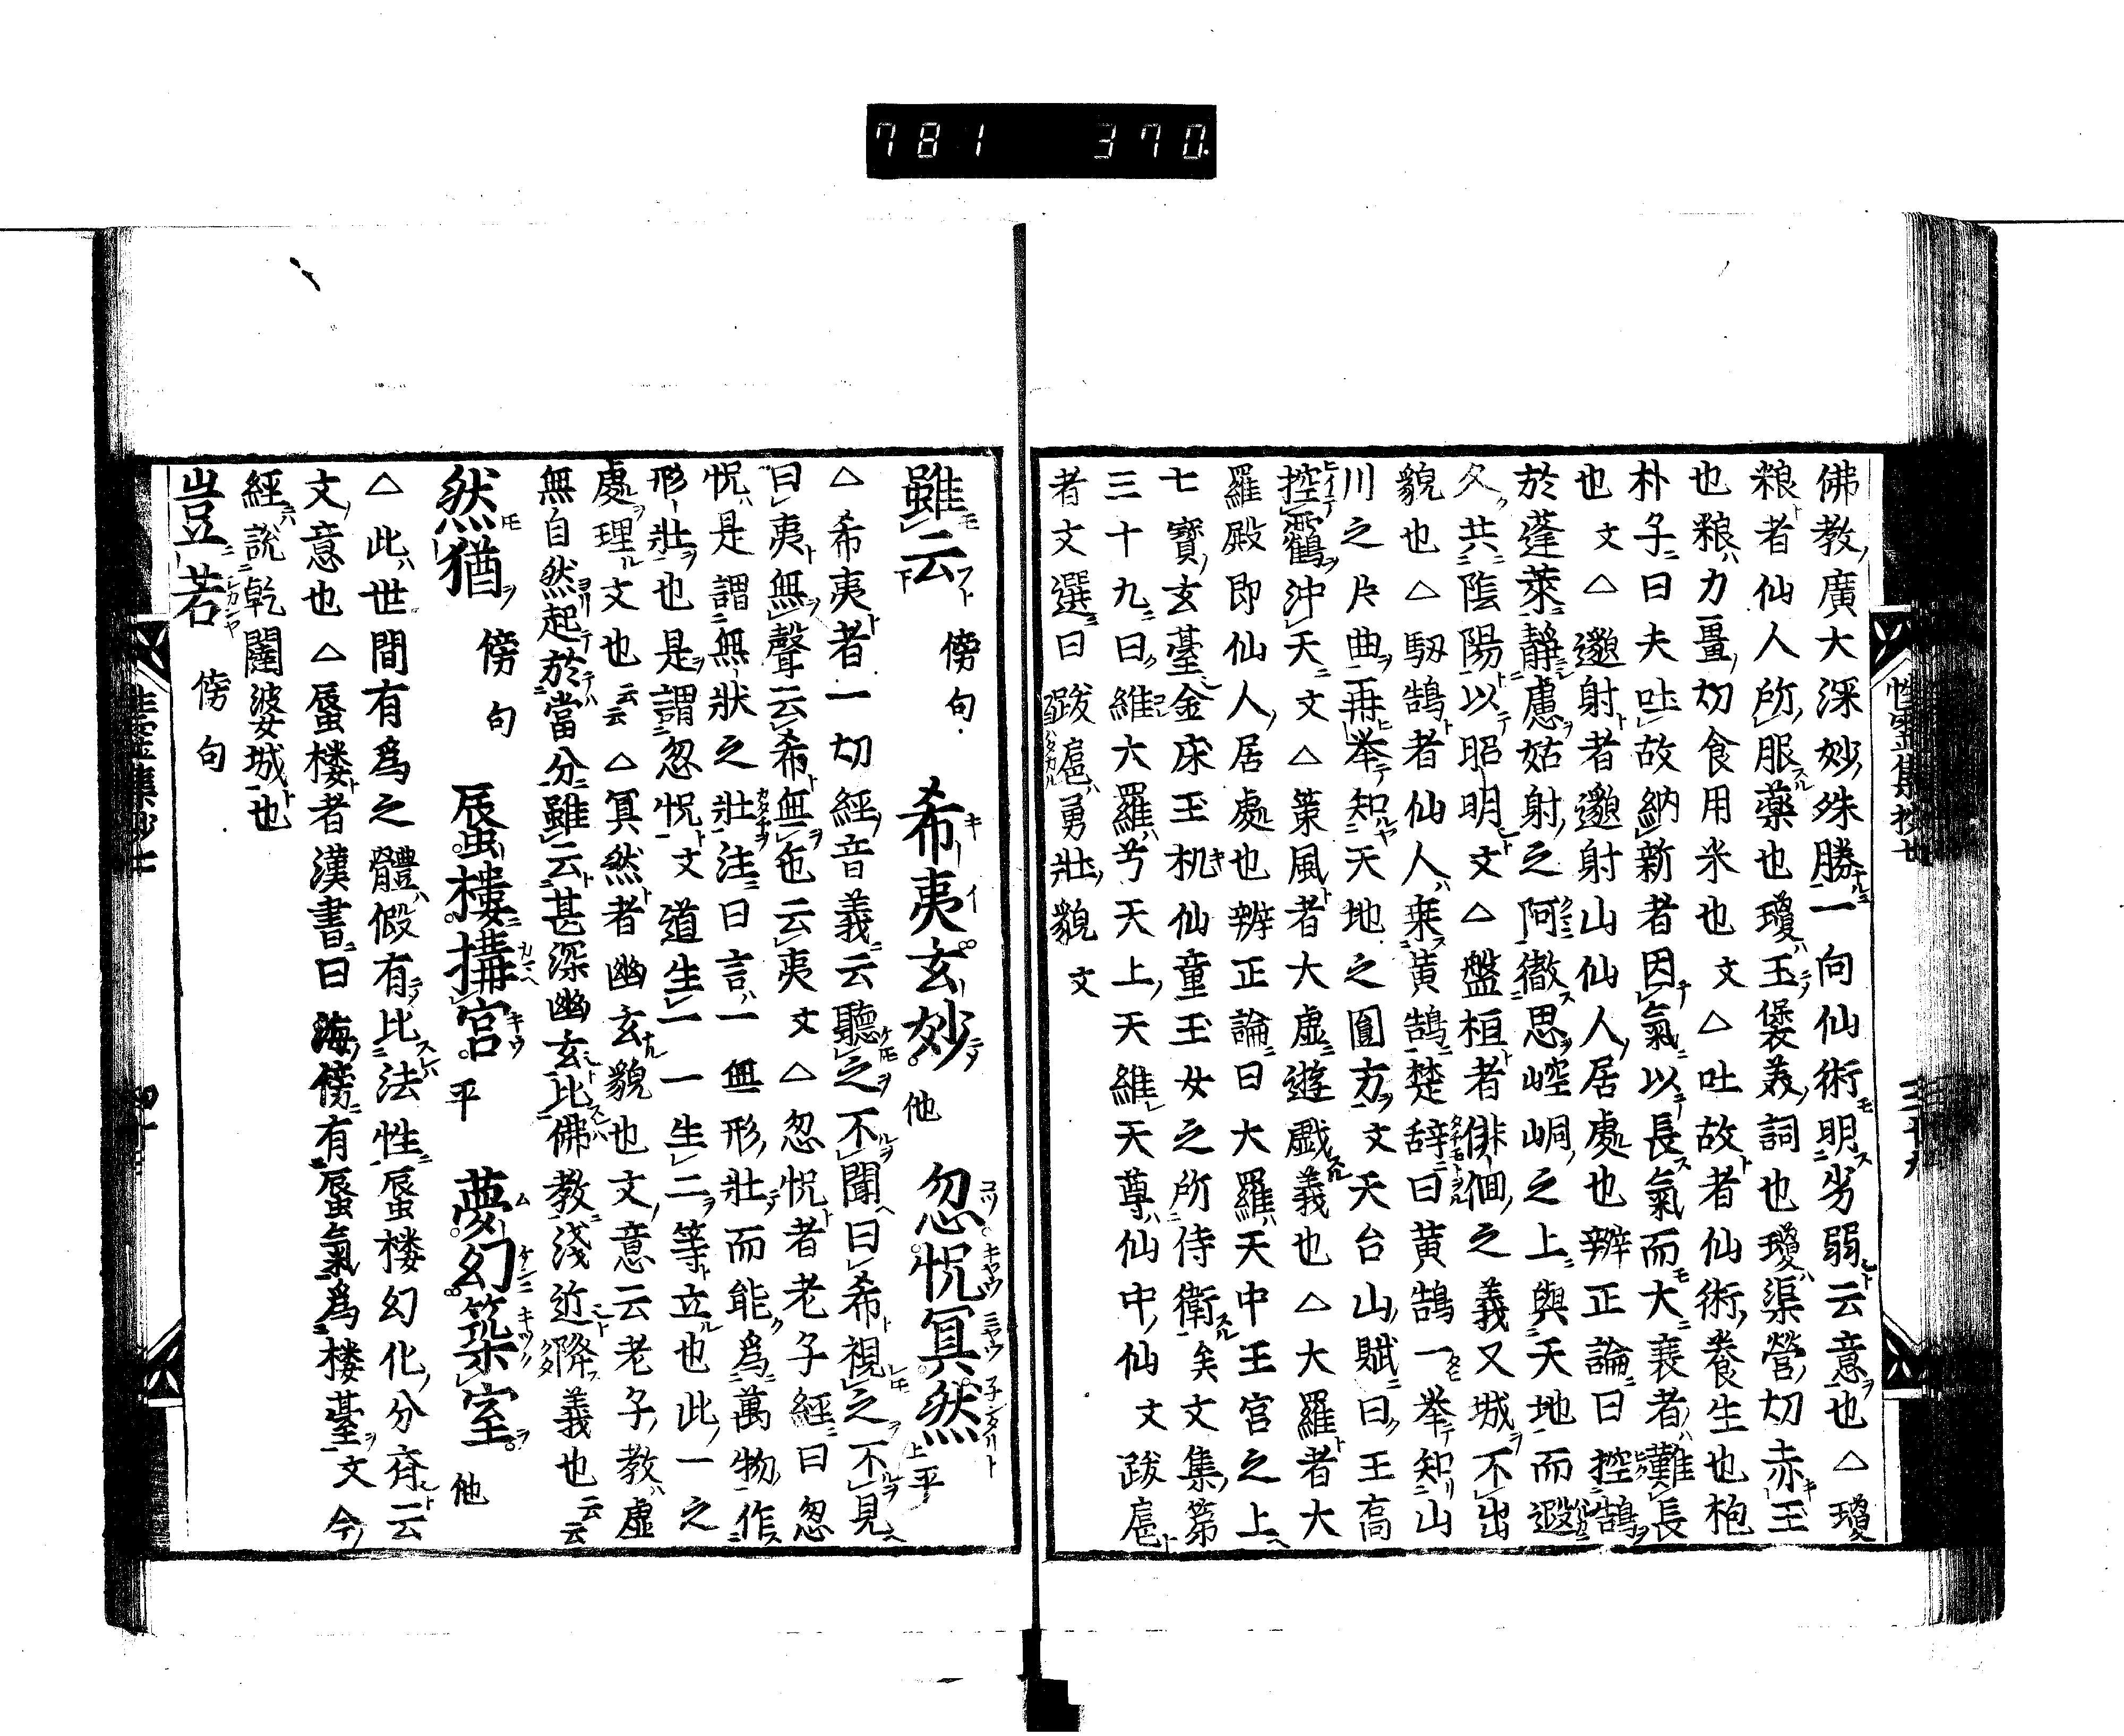 781 370.
佛教廣大深妙殊勝一向仙術明劣弱云意也△瓊
粮者仙人所服藥也瓊玉褒美詞也瓊渠營切赤玉
也粮力畺切食用米也文△吐故者仙術養生也枹
朴子曰夫吐故納新者因氣以長氣而大衰者難長
也文△邈射者邈射山仙人居處也辨正論曰控鵠
於蓬萊靜慮姑射之阿徹思崆峒之上與天地而遐
久共陰陽以昭明文△盤桓者俳佪之義又城不出
貌也△馭鵠者仙人乗黄鵠楚辞曰黄鵠一举知山
川之片曲再举知天地之圓方文天台山賦曰王高
控鶴沖天文△策風者大虚遊戯義也△大羅者大
羅殿即仙人居處也辨正論曰大羅天中王宮之上
七寳玄臺金床玉机仙童玉女之所侍衛矣文集第
三十九曰維大羅兮天上天維天尊仙中仙文跋扈
者文選曰跋扈勇壯貌文
雖云 傍句 希夷玄妙 他 忽怳冥然 上平
△希夷者一切經音義云聽之不聞曰希視之不見
曰夷無聲云希無色云夷文△忽怳者老子經曰忽
怳是謂無狀之壯注曰言一無形壯而能爲萬物作
形壯也是謂忽怳文道生一一生二等立也此一之
處理文也云云△冥然者幽玄貌也文意云老子教虚
無自然起於當分雖云甚深幽玄比佛教淺近降義也云云
然猶 傍句 蜃楼搆宮 平 夢幻築室 他
△此世間有爲之體假有比法性蜃楼幻化分齊云
文意也△蜃楼者漢書曰海傍有蜃氣爲楼臺文今
經說乾闥婆城也
豈若 傍句